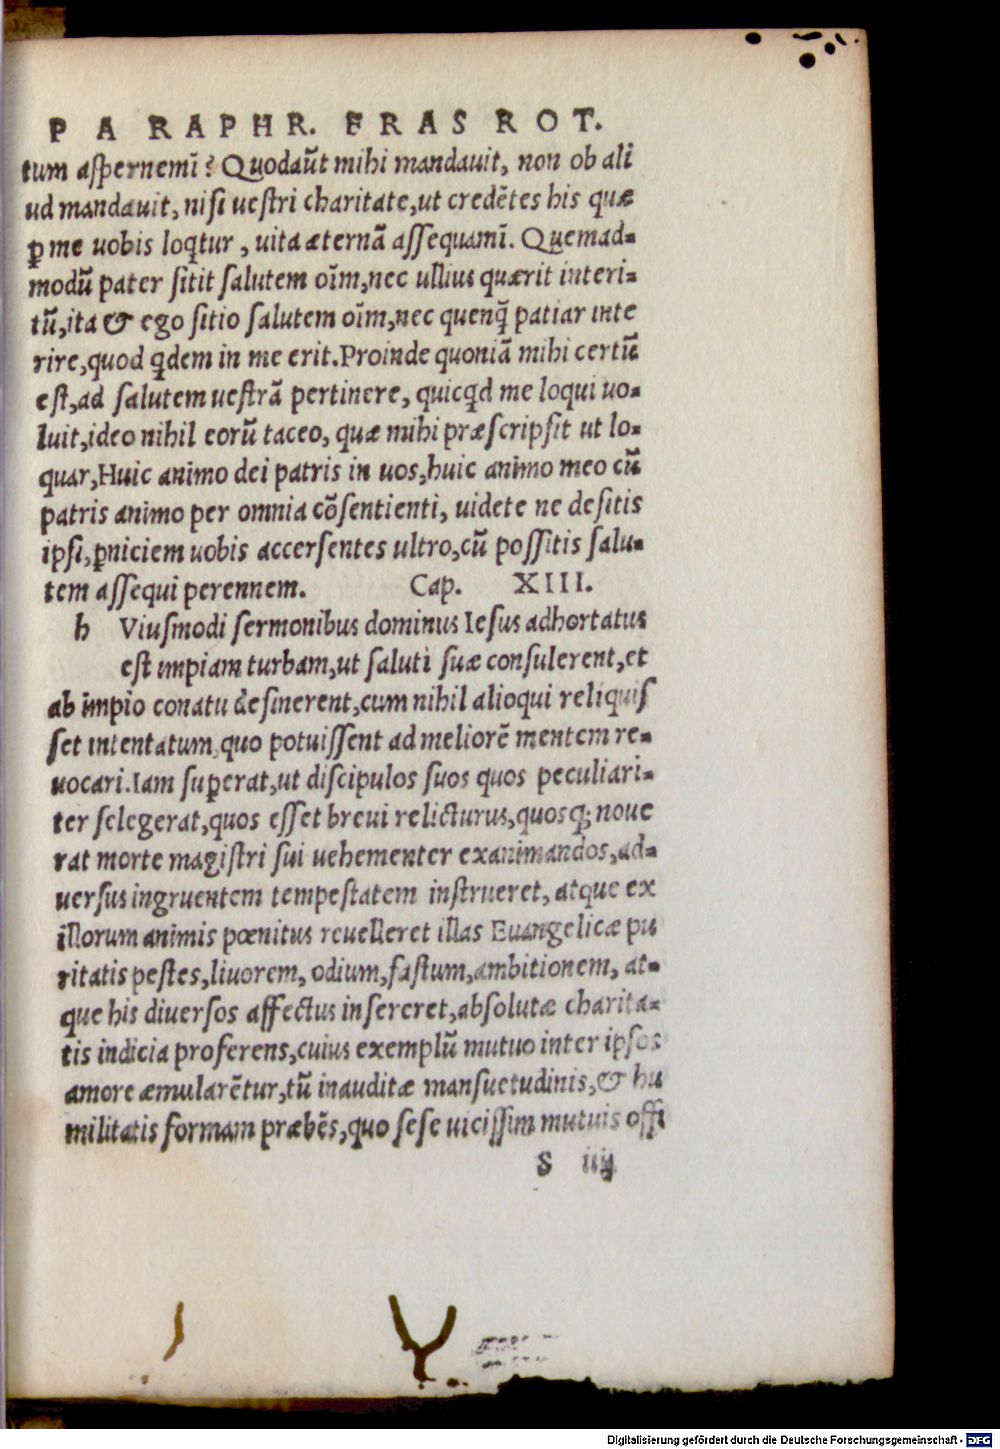 PARAPHR. FRAS ROT.
tum aspernemī? Quodaūt mihi mandauit, non ob ali
ud mandauit, nisi uestri charitate, ut credētes his quæ
ꝑ me uobis loqꝉtur, uita æternā assequamī. Quemad-
modū pater sitit salutem oīm, nec ullius quærit interi-
tū, ita & ego sitio salutem oīm, nec quenq̄ patiar inte
rire, quod q̇dem in me erit. Proinde quoniā mihi certū
est, ad salutem uestrā pertinere, quicq̇d me loqui uo-
luit, ideo nihil eorū taceo, quæ mihi præscripsit ut lo-
quar, Huic animo dei patris in uos, huic animo meo cū
patris animo per omnia cōsentienti, uidete ne desitis
ipsi, ꝑniciem uobis accersentes ultro, cū possitis salu-
tem assequi perennem. Cap. XIII.
h Viusmodi sermonibus dominus Iesus adhortatus
est impiam turbam, ut saluti suæ consulerent, et
ab impio conatu desinerent, cum nihil alioqui reliquis
set intentatum, quo potuissent ad meliorē mentem re-
uocari. Iam suꝑerat, ut discipulos suos quos peculiari-
ter selegerat, quos esset breui relicturus, quosq; noue
rat morte magistri sui uehementer exanimandos, ad-
uersus ingruentem tempestatem instrueret, atque ex
illorum animis pœnitus reuelleret illas Euangelicæ pu
ritatis pestes, liuorem, odium, fastum, ambitionem, at-
que his diuersos affectus insereret, absolutæ charita-
tis indicia proferens, cuius exemplū mutuo inter ipsos
amore æmularētur, tū inauditæ mansuetudinis, & hu
militatis formam præbēs, quo sese uicissim mutuis offi
S iiij
Digitalisierung gefördert durch die Deutsche Forschungsgemeinschaft - DFG